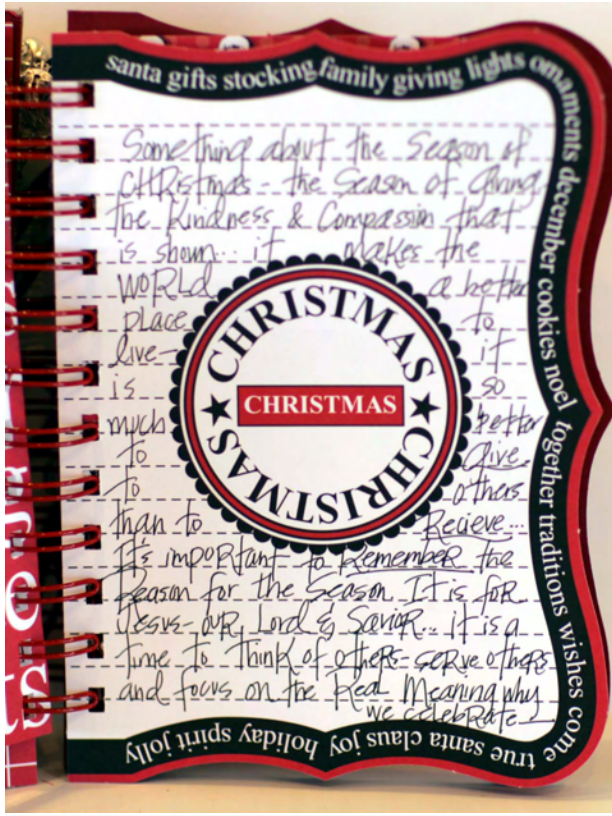 santa gifts stocking family giving lights ornaments december cookies noel together traditions wishes come true santa claus joy holiday spirit jolly
Something about the Season of
CHRistmas - the Season of Giving
the Kindness & Compassion that
is shown... it makes the
WORLd a better
place to
live - it
is so
much better
to Give
to others
than to Recieve...
It's important to Remember the
Reason for the Season It is for
Jesus - our Lord & Savior... it is a
time to think of others - serve others
and focus on the Real Meaning why
we celebrate
CHRISTMAS
CHRISTMAS
CHRISTMAS